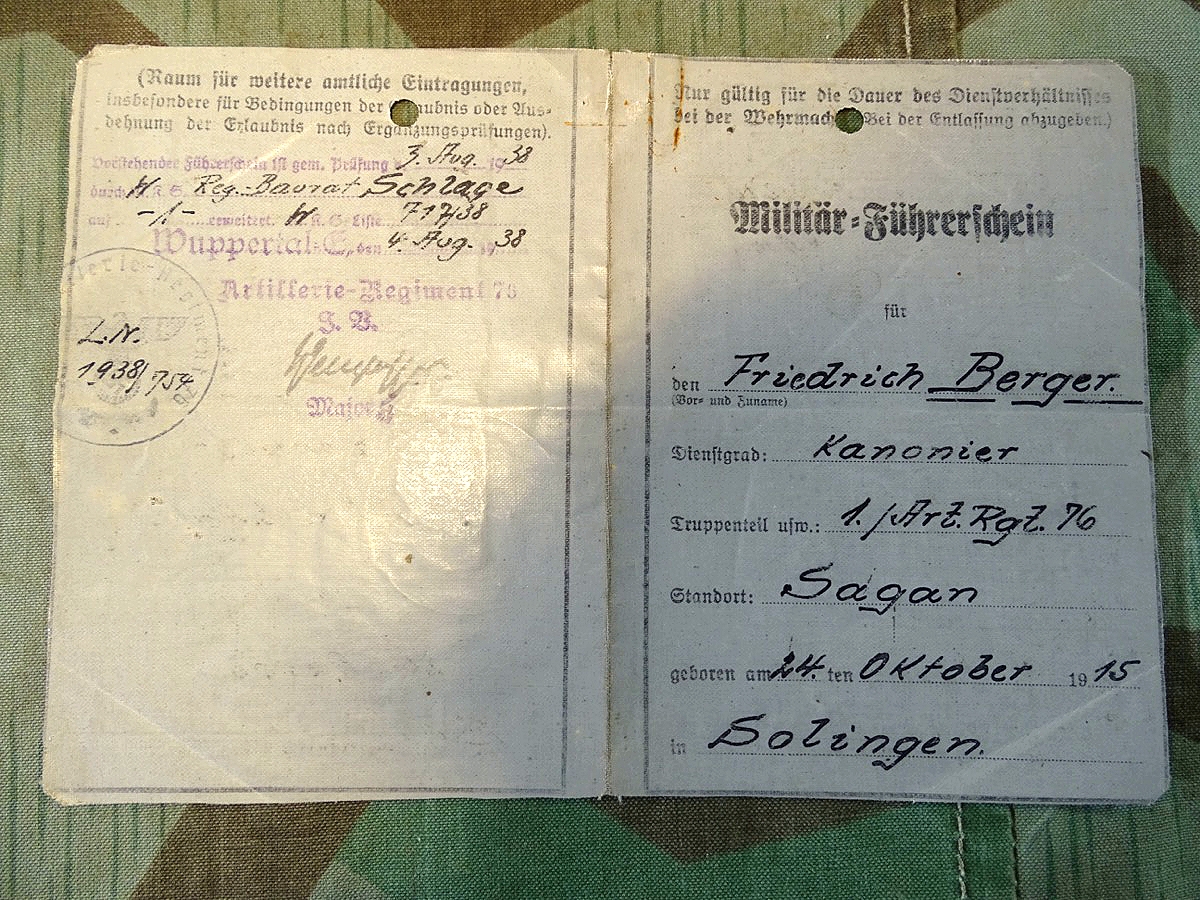 (Raum für weitere amtliche Eintragungen,
insbesondere für Bedingungen der Erlaubnis oder Aus-
dehnung der Erlaubnis nach Ergänzungsprüfungen).
Vorstehender Führerschein ist gem. Prüfung 3. Aug. 19 38
durch W. K. S. Reg.-Baurat Schlage
auf -1- erweitert. W. K. S.-Liste 717/38
Wuppertal-E, den 4. Aug. 19 38
Artillerie-Regiment 76
J. V.
Major
L.N.
1938/754
Nur gültig für die Dauer des Dienstverhältnisses
bei der Wehrmacht. Bei der Entlassung abzugeben.)
Militär-Führerschein
für
den Friedrich Berger.
(Vor- und Zuname)
Dienstgrad: Kanonier
Truppenteil usw.: 1./Art. Rgt. 76
Standort: Sagan
geboren am 24. ten Oktober 19 15
in Solingen.